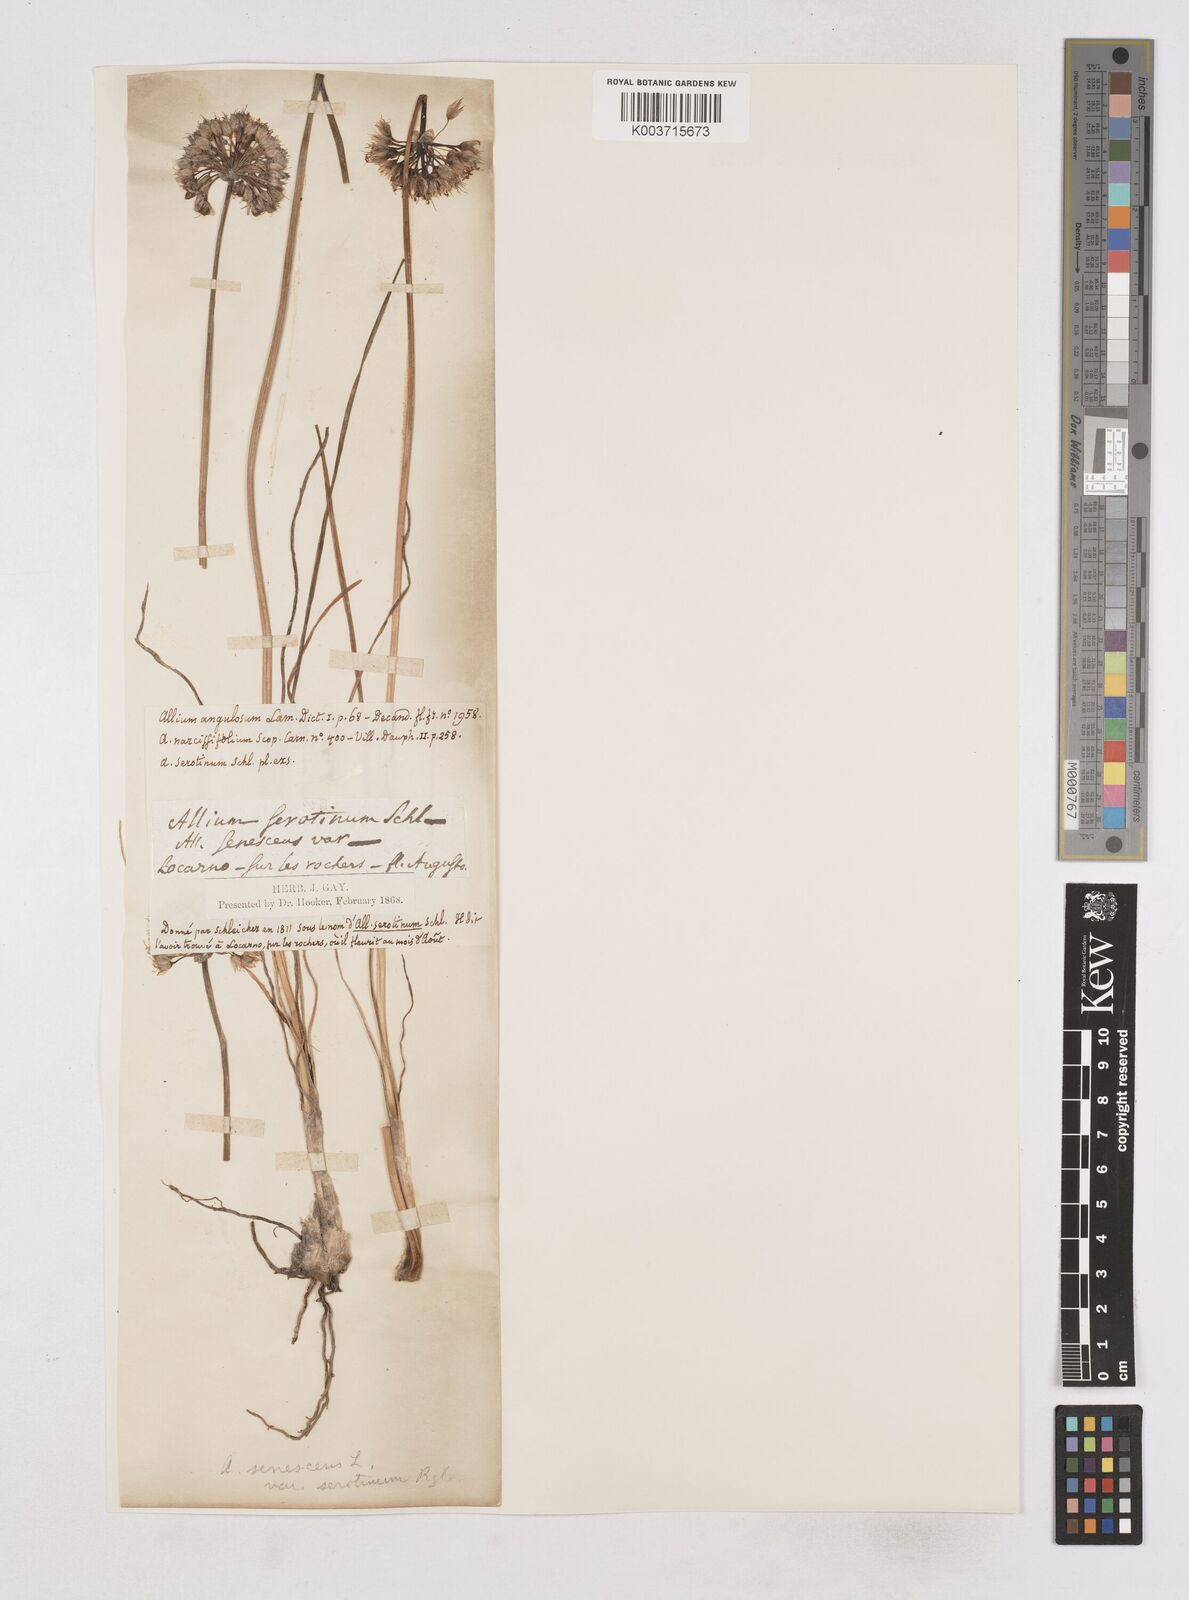 ROYAL BOTANIC GARDENS KEW
K003715673
Allium angulosum Lam. Dict. I. p. 68 – Decand. fl. fr. nº 1958.
A. narcissifolium Scop. Carn. nº. 400 – Vill. Dauph. II. p. 258.
A. serotinum Schl. pl. exs.
Allium serotinum Schl
All. senescens var
Locarno – sur les rochers – fl. Augusto.
HERB. J. GAY.
Presented by Dr. Hooker, February 1868.
Donné par Schleicher en 1811 sous le nom d'All. serotinum Schl. Il dit
l'avoir trouvé à Locarno, sur les rochers, où il fleurit au mois d'Août.
A. senescens L.
var. serotinum Rgl.
inches
Density
Don Williams
M000767
Kew
Royal Botanic Gardens
copyright reserved
0 1 2 3 4 5 6 7 8 9 10
cm